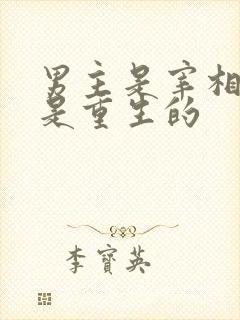 男主是宰相
是重生的
李寶英